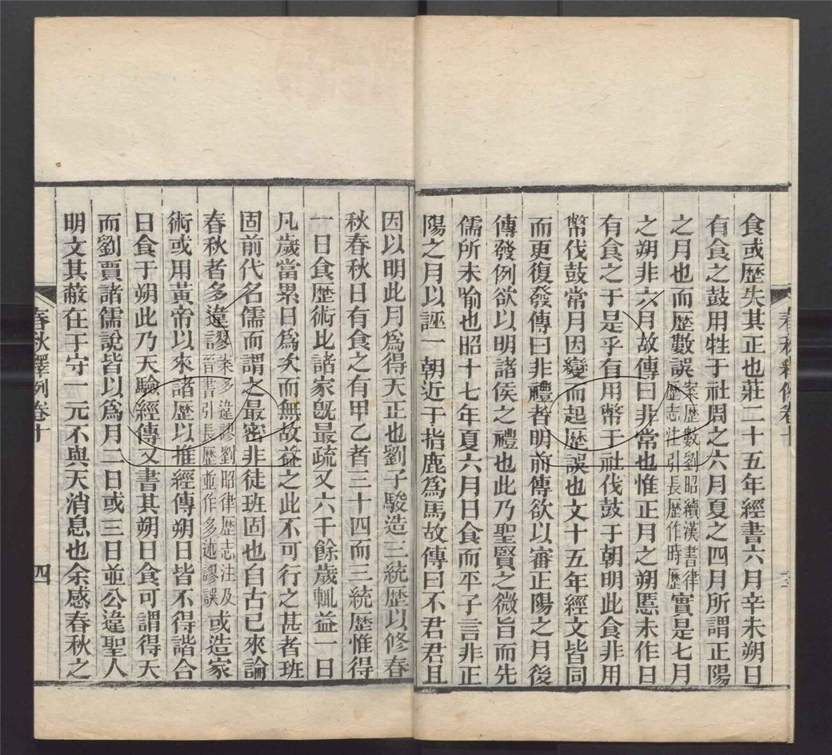 食或歷失其正也莊二十五年經書六月辛未朔日
有食之鼓用牲于社周之六月夏之四月所謂正陽
之月也而歷數誤案歷數劉昭續漢書律歷志注引長歷作時歷實是七月
之朔非六月故傳曰非常也惟正月之朔慝未作日
有食之于是乎有用幣于社伐鼓于朝明此食非用
幣伐鼓常月因變而起歷誤也文十五年經文皆同
而更復發傳曰非禮者明前傳欲以審正陽之月後
傳發例欲以明諸侯之禮也此乃聖賢之微旨而先
儒所未喻也昭十七年夏六月日食而平子言非正
陽之月以誣一朝近于指鹿爲馬故傳曰不君君且
因以明此月爲得天正也劉子駿造三統歷以修春
秋春秋日有食之有甲乙者三十四而三統歷惟得
一日食歷術比諸家旣最疏又六千餘歲輒益一日
凡歲當累日爲次而無故益之此不可行之甚者班
固前代名儒而謂之最密非徒班固也自古已來論
春秋者多違謬案多違謬劉昭律歷志注及晉書引長歷並作多述謬誤或造家
術或用黃帝以來諸歷以推經傳朔日皆不得諧合
日食于朔此乃天驗經傳又書其朔日食可謂得天
而劉賈諸儒說皆以爲月二日或三日並公違聖人
明文其蔽在于守一元不與天消息也余感春秋之
春秋釋例卷十 四